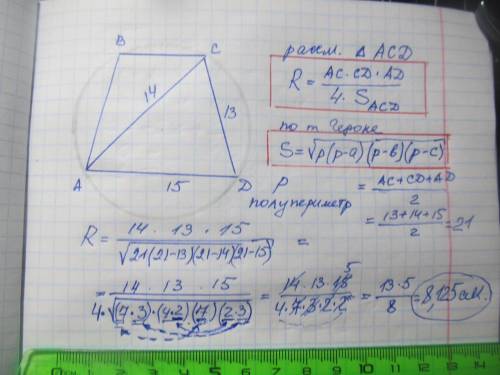 B C
14
13
A 15 D
рассм. Δ ACD
R = AC·CD·AD / 4·S_ACD
по т Герона
S = √p(p-a)(p-b)(p-c)
P = AC+CD+AD / 2
полупериметр
= 13+14+15 / 2 = 21
R = 14 · 13 · 15 / √21(21-13)(21-14)(21-15) =
= 14 · 13 · 15 / 4·√(7·3)·(4·2)(7)(2·3) = 14·13·15 5 / 4·7·3·2·2 = 13·5 / 8 = 8,125 см.
0 см 1 2 3 4 5 6 7 8 9 10 11 12 13 14